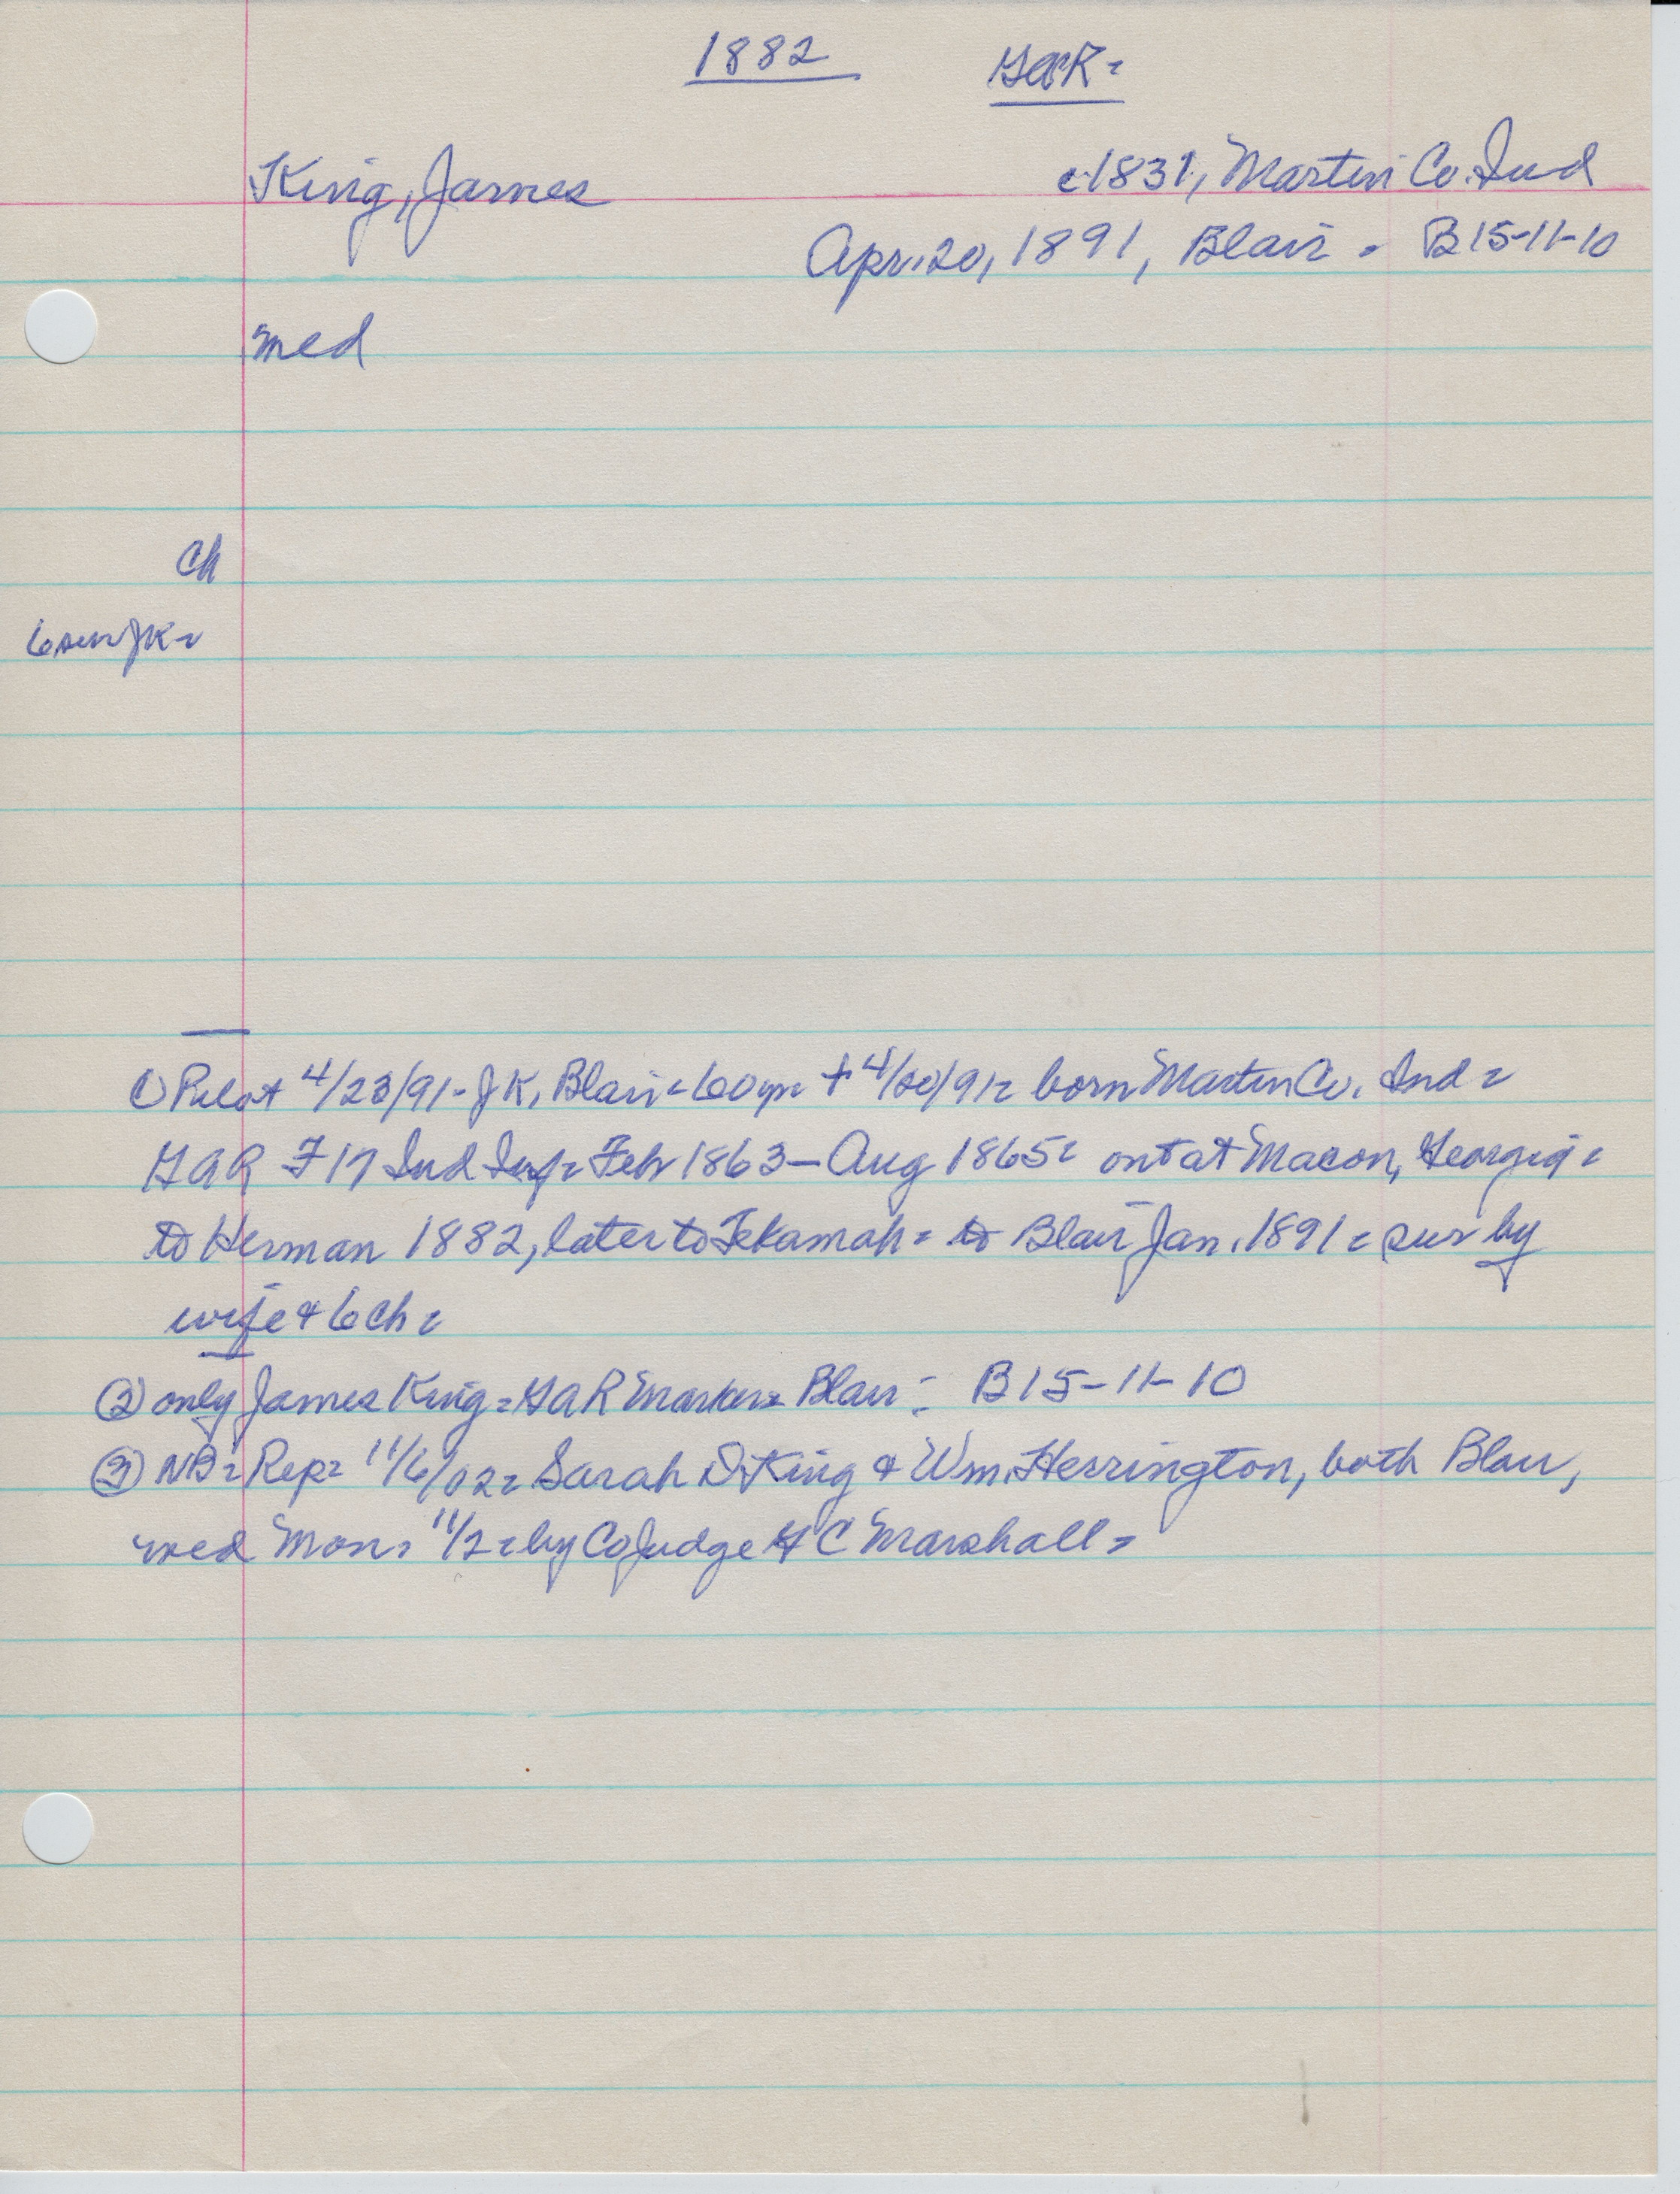 1882 GAR =
King, James c 1831, Martin Co. Ind
Apr. 20, 1891, Blair = B 15-11-10
med
Ch
6 sur JK =
① Pilot 4/23/91 - JK, Blair = 60 yr = + 4/20/91 = born Martin Co. Ind =
GAR F 17 Ind Inf = Feb 1863 - Aug 1865 = out at Macon, Georgia =
to Herman 1882, later to Tekamah = to Blair Jan. 1891 = sur by
wife & 6 ch =
② only James King = GAR Marker = Blair = B 15-11-10
③ NB = Rep = 11/6/02 = Sarah D King & Wm. Herrington, both Blair,
med Mon = 11/2 = by Co Judge H C Marshall =